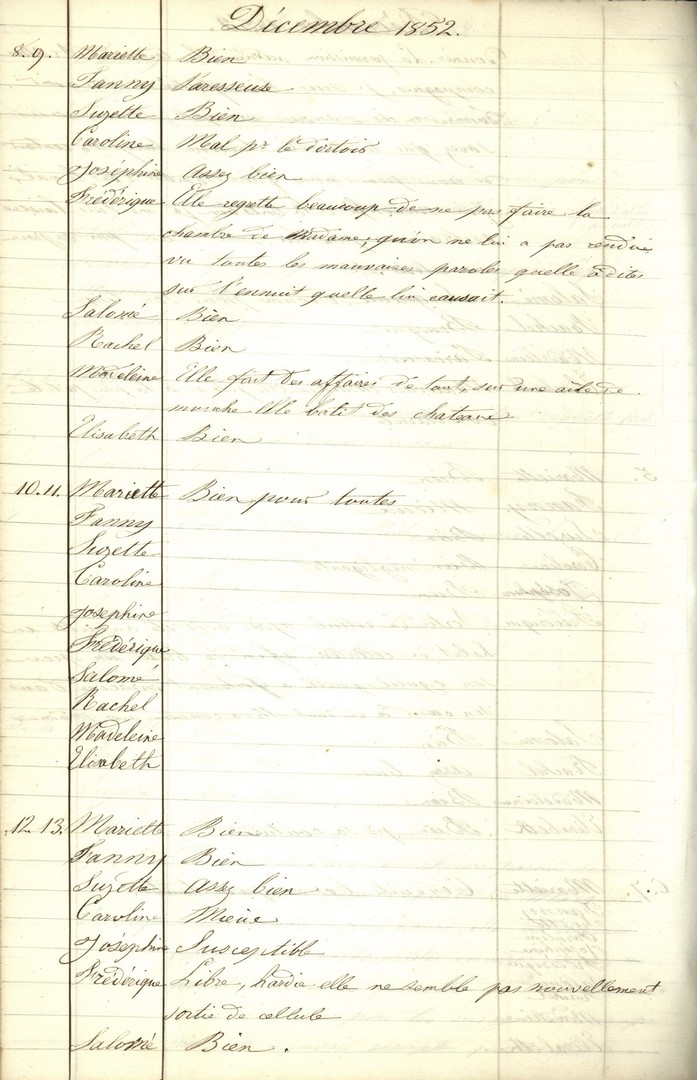 Décembre 1852.
8.9. Mariette Bien
Fanny Paresseuse
Suzette Bien
Caroline Mal pr le dortoir
Joséphine Assez bien
Frédérique Elle regrette beaucoup de ne pas faire la
chambre de Madame, qu'on ne lui a pas rendue
vu toutes les mauvaises paroles quelle a dites
sur l'ennuit quelle lui causait.
Salomé Bien
Rachel Bien
Madeleine Elle fait des affaires de tout, sur une aile de
mouche Elle batit des chateaux
Elisabeth Bien
10.11. Mariette Bien pour toutes
Fanny
Suzette
Caroline
Josephine
Frédérique
Salomé
Rachel
Madeleine
Elisabeth
12.13. Mariette Bien
Fanny Bien
Suzette Assez bien
Caroline Mieux
Joséphine Susceptible
Frédérique Libre, hardie elle ne semble pas nouvellement
sortie de cellule
Salomé Bien.